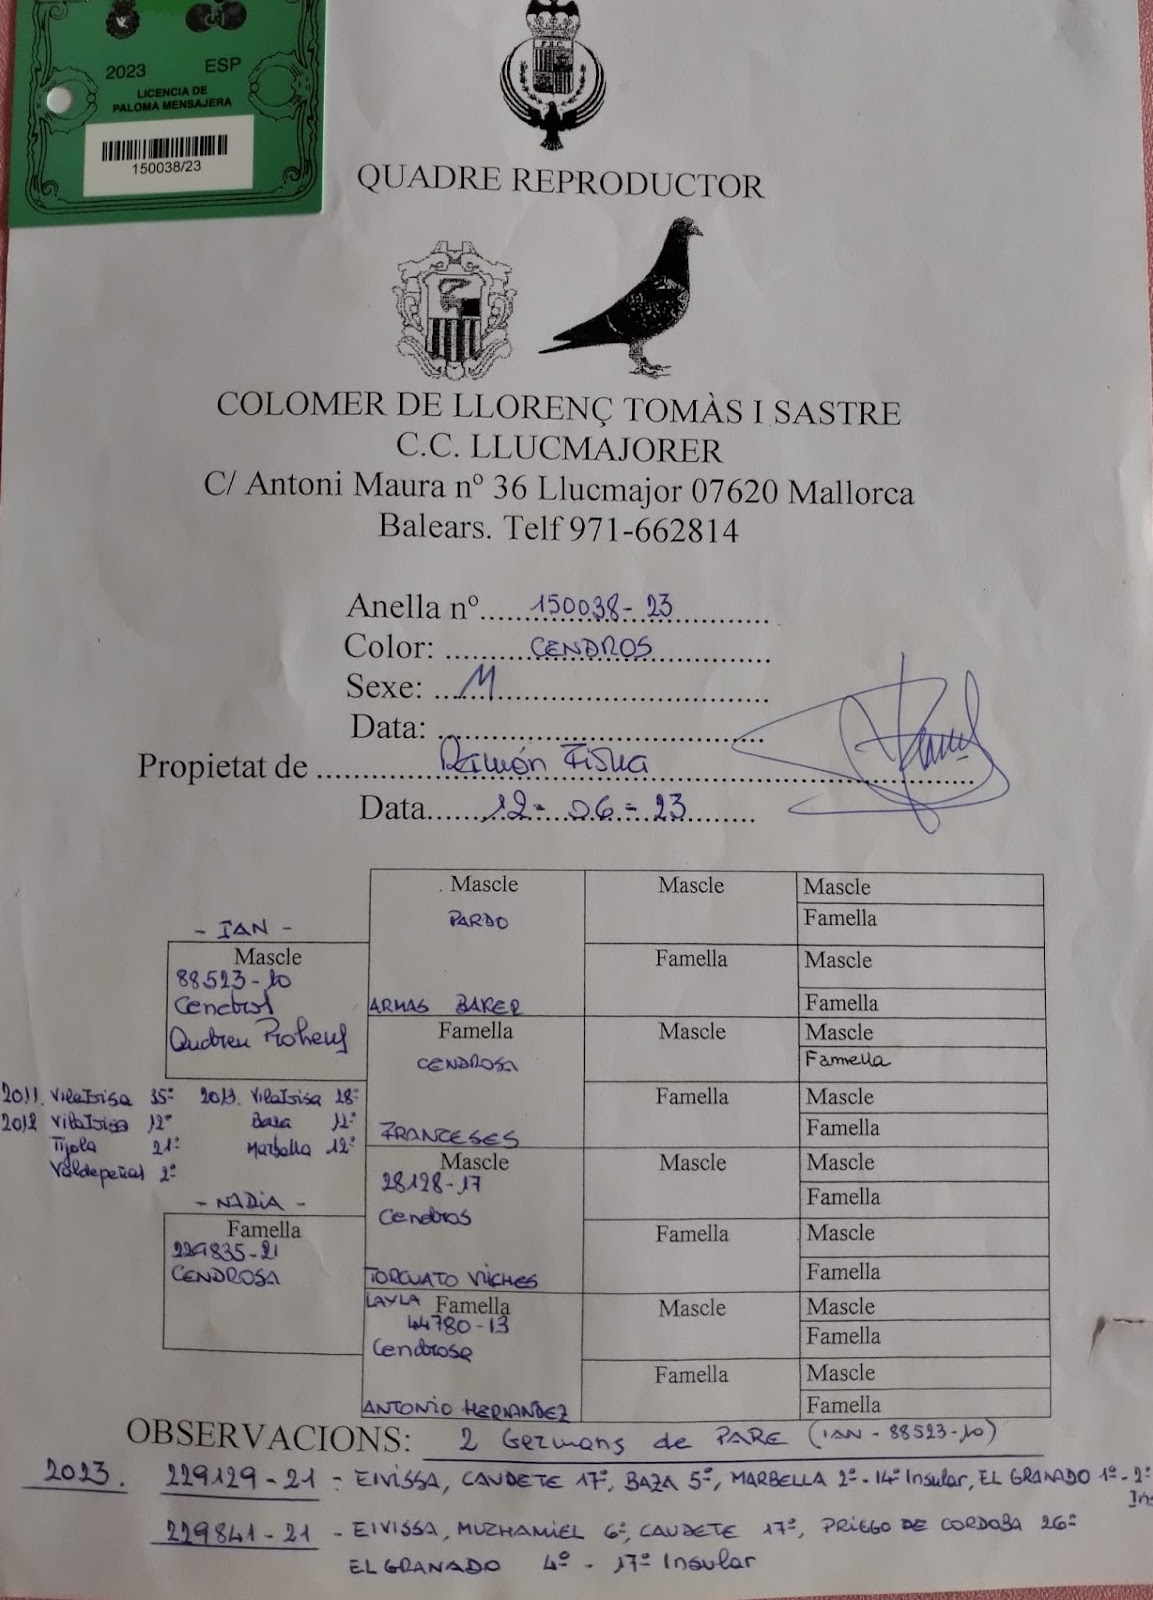 2023 ESP
LICENCIA DE
PALOMA MENSAJERA
150038/23
QUADRE REPRODUCTOR
COLOMER DE LLORENÇ TOMÀS I SASTRE
C.C. LLUCMAJORER
C/ Antoni Maura nº 36 Llucmajor 07620 Mallorca
Balears. Telf 971-662814
Anella nº..... 150038-23
Color: CENDROS
Sexe: M
Data:
Propietat de Ramón
Data 12-06-23
Mascle Mascle Mascle
PARDO Famella
- IAN -
Mascle Famella Mascle
88523-10
Cendros ARMAS BAKER Famella
Famella Mascle Mascle
CENDROSA Famella
2011. 35º 2013. 28º Famella Mascle
2012 12º Baza 12º Famella
Tijola 21º Marbella 12º FRANCESES
Valdepeñas 2º Mascle Mascle Mascle
28128-17 Famella
- NADIA - Cendros
Famella Famella Mascle
229835-21
CENDROSA TORCUATO VILCHES Famella
LAYLA Famella Mascle Mascle
44780-13 Famella
Cendrosa
Famella Mascle
ANTONIO HERNANDEZ Famella
OBSERVACIONS: 2 Germans de PARE (IAN - 88523-10)
2023. 229129-21 - EIVISSA, CAUDETE 17º, BAZA 5º, MARBELLA 2º-14º Insular, EL GRANADO 1º-2º
Ins
229841-21 - EIVISSA, MUZHAMIEL 6º, CAUDETE 17º, PRIEGO DE CORDOBA 26º
EL GRANADO 4º - 17º Insular